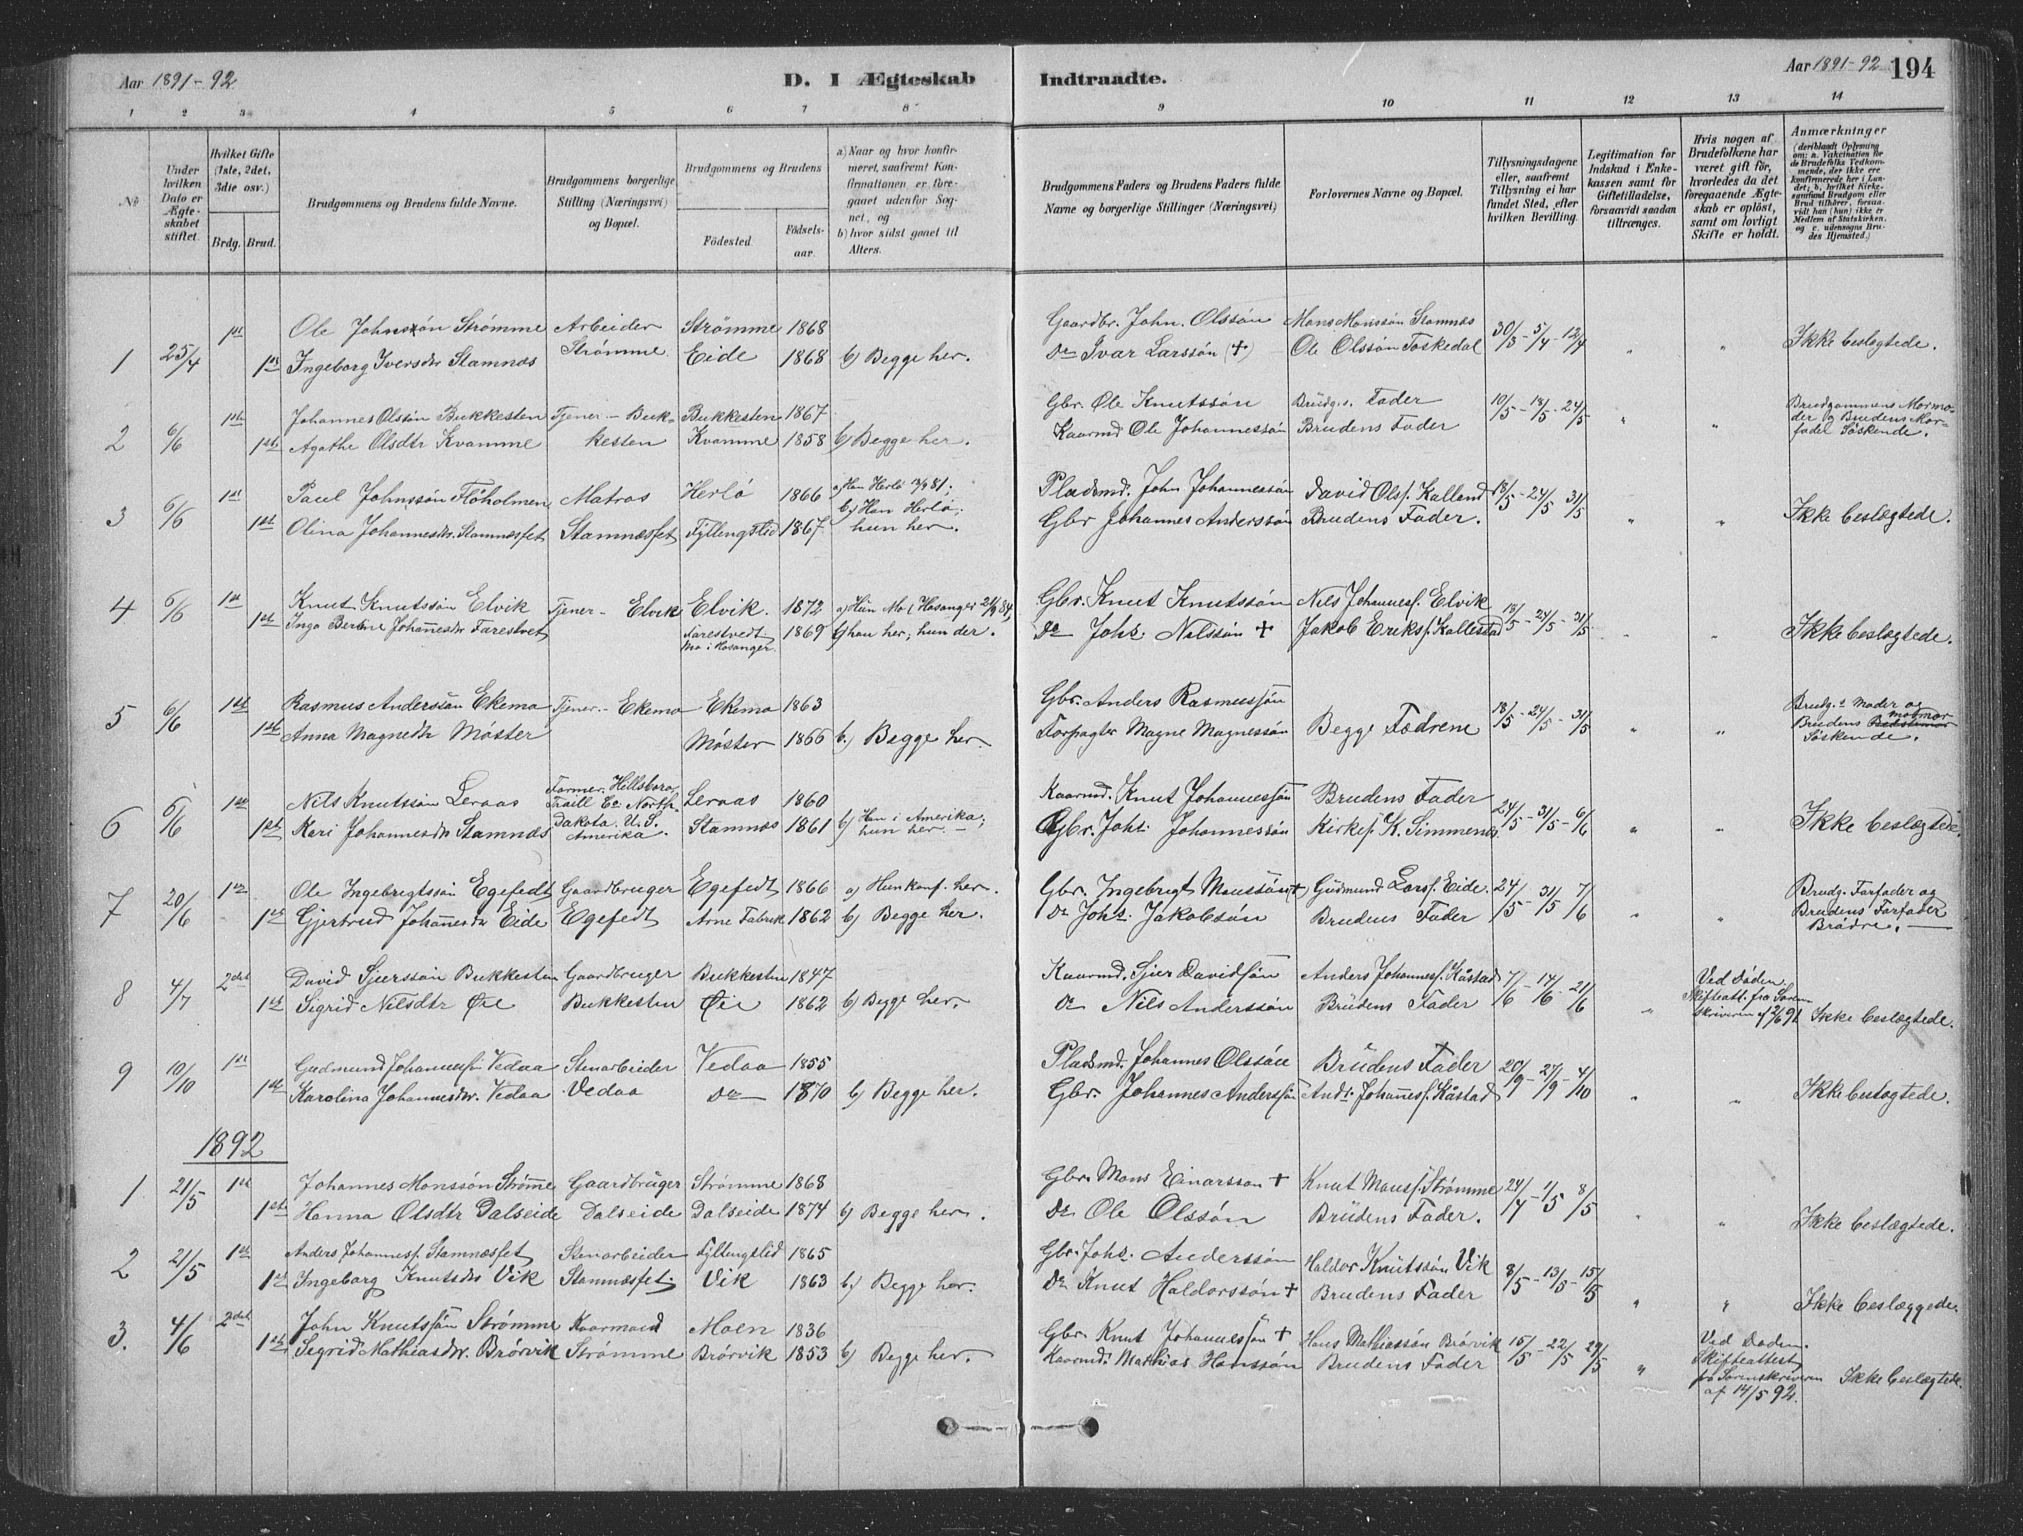 Aar 1891-92
D. I Ægteskab Indtraadte.
Aar 1891-92 194
1 2 3 4 5 6 7 8 9 10 11 12 13 14
No
Under hvilken Dato er Ægteskabet stiftet.
Hvilket Gifte (1ste, 2det, 3die osv.)
Brdg. Brud.
Brudgommens og Brudens fulde Navne.
Brudgommens borgerlige Stilling (Næringsvei) og Bopæl.
Brudgommens og Brudens
Fødested. Fødselsaar.
a) Naar og hvor konfirmeret, saafremt Konfirmationen er foregaaet udenfor Sognet, og
b) hvor sidst gaaet til Alters.
Brudgommens Faders og Brudens Faders fulde Navne og borgerlige Stillinger (Næringsvei)
Forlovernes Navne og Bopæl.
Tillysningsdagene eller, saafremt Tillysning ei har fundet Sted, efter hvilken Bevilling.
Legitimation for Indskud i Enkekassen samt for Giftetilladelse, forsaavidt saadan tiltrænges.
Hvis nogen af Brudefolkene har været gift før, hvorledes da det foregaaende Ægteskab er opløst, samt om lovligt Skifte er holdt.
Anmærkninger
(deriblandt Oplysning om: a. Vakcination for de Brudefolks Vedkommende, der ikke ere konfirmerede her i Landet; b. hvilket Kirkesamfund Brudgom eller Brud tilhører, forsaavidt han (hun) ikke er Medlem af Statskirken, og c. udensogns Brudes Hjemsted.)
1 25/4 1st Ole Johnssön Strømme Arbeider Strømme 1868 Gaardbr. John. Olssön Mons Monssön Stamnæs 30/3 - 5/4 - 12/4 " " Ikke beslægtede.
1st Ingeborg Iversdtr Stamnæs Strømme Eide 1868 b) Begge her. Do Ivar Larssön (+) Ole Olssön Toskedal
2 6/6 1st Johannes Olssön Bukkesten Tjener - Bukkesten Bukkesten 1867 Gbr. Ole Knutssön Brudg.s Fader 10/5 - 18/5 - 24/5 " " Brudgommens Mormoder og Brudens Morfader Söskende.
1st Agathe Olsdtr Kvamme Kvamme 1858 b) Begge her. Kaarmd Ole Johannessön Brudens Fader
3 6/6 1st Paul Johnssön Flöholmen Matros Herlö 1866 a) Han Herlö 81; b) Han Herlö; hun her. Pladsmd. John Johannessön David Olsf. Kalland 18/5 - 24/5 - 31/5 " " Ikke beslægtede.
1st Olina Johannesdtr. Stamnæsfet Stamnæsfet Fyllingslid 1867 Gbr Johannes Anderssön Brudens Fader.
4 6/6 1st Knut Knutssön Elvik Tjener - Elvik Elvik. 1872 a) Hun Mo i Hosanger 84, Gbr. Knut Knutssön Nils Johannesf. Elvik 18/5 - 24/5 - 31/5 " " Ikke beslægtede.
1st Inga Johannesdtr Farestvet Farestvedt Mo i Hosanger 1869 b) han her; hun der. Do Johs Nilssön + Jakob Eriksf. Kallestad
5 6/6 1st Rasmus Anderssön Ekemo Tjener - Ekemo Ekemo 1863 Gbr. Anders Rasmussön 18/5 - 24/5 - 31/5 " " Brudg.s Moder og Brudens mormor Söskende.
1st Anna Magnedtr Möster Möster 1866 b.) Begge her. Forpagter Magne Magnessön Begge Fædrene
6 6/6 1st Nils Knutssön Leraas Farmer. Hillsboro, Traill Co. North Dakota. U.S. Amerika. Leraas 1860 Kaarmd. Knut Johannessön Brudens Fader 24/5 - 31/5 - 6/6 " " Ikke beslægtede.
1st Kari Johannesdtr Stamnæs Stamnæs 1861 b) Han i Amerika; hun her. - Gbr. Johs. Johannessön Kirkes. K. Simmenes.
7 20/6 1st Ole Ingebrigtssön Egefedt Gaardbruger Egefedt 1866 a) Hun konf. her. Gbr. Ingebrigt Monssön (+ Gudmund Larsf. Eide. 24/5 - 31/5 7/6 " " Brudg. Farfader og Brudens Farfader Brödre.
1st Gjertrud Johannesdtr Eide Egefedt Arne Fabrik 1862 b) Begge her. Do Johs. Jakobsön Brudens Fader
8 4/7 2det David Sjurssön Bukkesten Gaardbruger Bukkesten 1847 Kaarmd. Sjur Davidsön Anders Johannesf. Kåstad 7/6 - 14/6 - 21/6 " Ved Döden. Skifteatt. fra Sorenskriveren af 2/6 91. Ikke beslægtede.
1st Sigrid Nilsdtr Öie Bukkesten Öie 1862 b) Begge her. Do Nils Anderssön Brudens Fader
9 10/10 1st Gudmund Johannesf. Vedaa Stenarbeider Vedaa 1855 Pladsmd. Johannes Olssön Brudens Fader 20/9 - 27/9 - 4/10 " " Ikke beslægtede.
1st Karolina Johannesdtr. Vedaa Vedaa Do 1870 b) Begge her. Gbr. Johannes Anderssön Andr. Johannesf. Kåstad
1892
1 21/5 1st Johannes Monssön Strømme Gaardbruger Strømme 1868 Gbr. Mons Einarsson + Knut Monsf. Strømme 24/4 - 1/5 8/5 " " Ikke beslægtede.
1st Hanna Olsdtr Dalseide Dalseide Dalseide 1874 b) Begge her. Do Ole Olssön Brudens Fader.
2 21/5 1st Anders Johannesf. Stamnæsfet Stenarbeider Fyllingslid 1865 Gbr. Johs. Anderssön Haldor Knutssön Vik 8/5 - 13/5 - 15/5 " " Ikke beslæggede.
1st Ingeborg Knutsdtr Vik Stamnæsfet. Vik 1863 b) Begge her. Do Knut Haldorssön + Brudens Fader
3. 4/6 2det John Knutssön Strømme Kaarmand Moen 1836 Gbr. Knut Johannessön + Hans Mathiassön Brørvik 15/5 - 22/5 29/5 " Ved Døden. Skifteattest fra Sorenskriveren af 14/5 92. Ikke beslægtede.
1st Sigrid Mathiasdtr. Brörvik Strømme Brørvik 1853 b) Begge her. Kaarmd. Mathias Hanssön Brudens Fader